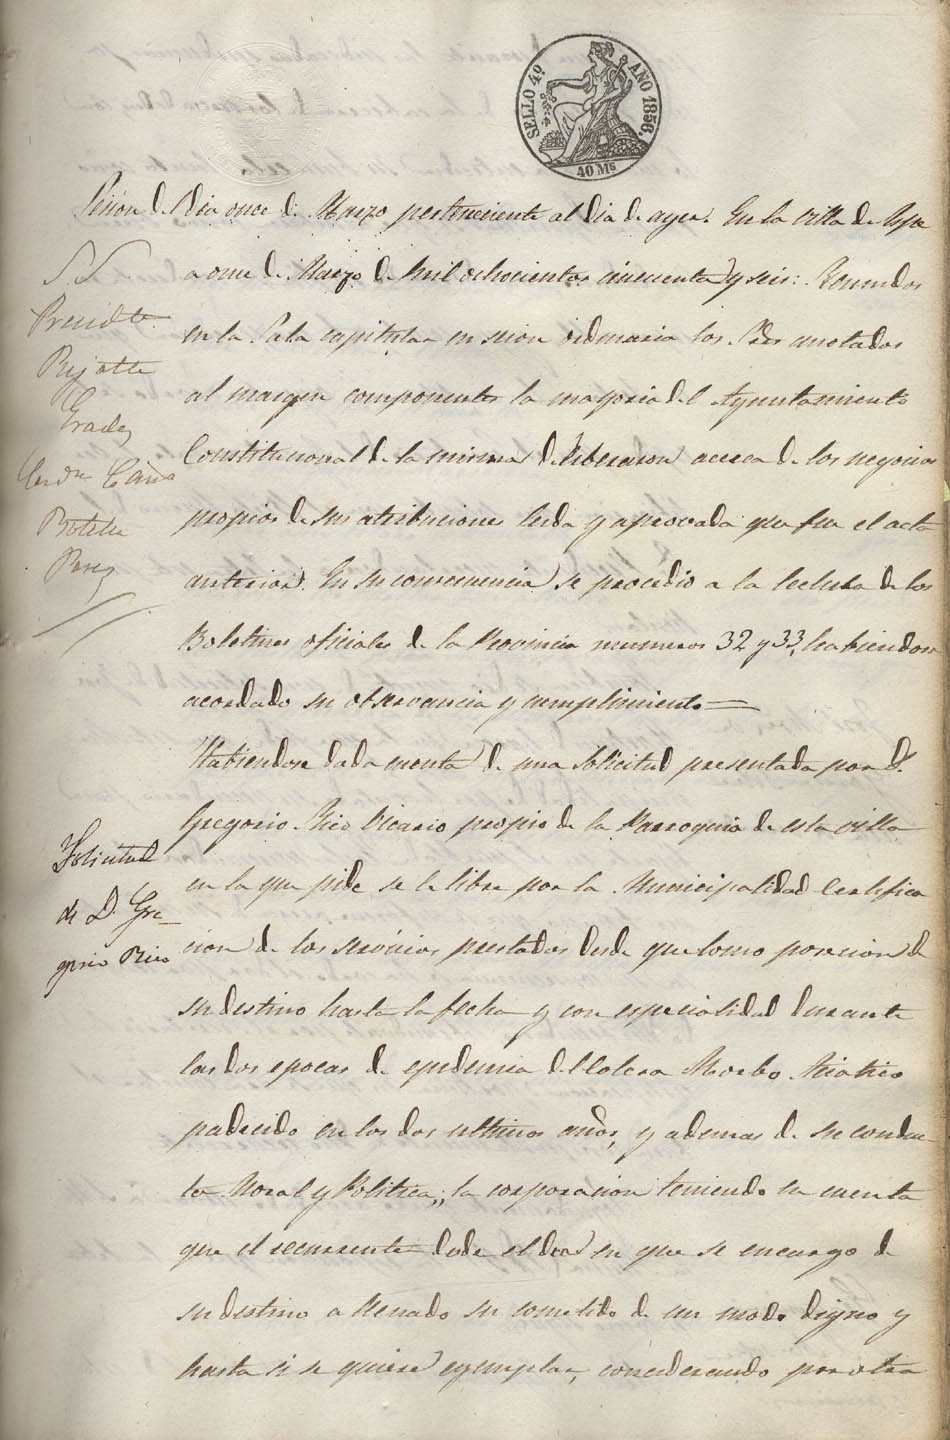 SELLO 4º. AÑO 1856.
40 Ms
Sesion del dia once de Marzo perteneciente al dia de ayer. En la villa de
a once de Marzo de mil ochocientos cincuenta y seis: Reunidos
en la Sala capitular en sesion ordinaria los Sres anotados
al margen componentes la mayoria del Ayuntamiento
Constitucional de la misma deliberaron acerca de los negocios
propios de sus atribuciones leida y aprovada que fue el acta
anterior. En su consecuencia se procedio a la lectura de los
Boletines oficiales de la Provincia numeros 32 y 33, habiendose
acordado su observancia y cumplimiento=
S S.
Presidte
Prados
Perez
Habiendose dada cuenta de una solicitud presentada por D.
Gregorio Rico Vicario propio de la Parroquia de esta villa
en la que pide se le libre por la Municipalidad Certifica
cion de los servicios prestados desde que tomo posecion de
su destino hasta la fecha y con especialidad durante
las dos epocas de epidemia del Colera Morbo Asiatico
padecido en los dos ultimos años, y ademas de su conduc-
ta Moral y Politica,; la corporacion teniendo en cuenta
que el recurrente desde el dia en que se encargo de
su destino a llenado su cometido de un modo digno y
hasta si se quiere ejemplar, considerando por otra
Solicitud
de D. Gre-
gorio Rico